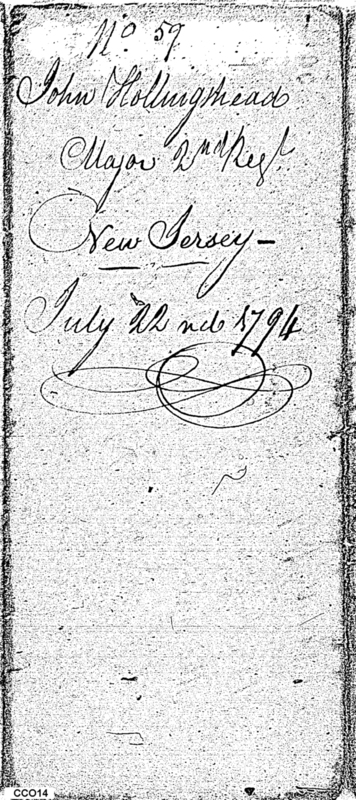 No. 59
John Hollingshead
Major 2nd Regt.
New Jersey —
July 22nd 1794
CCO14